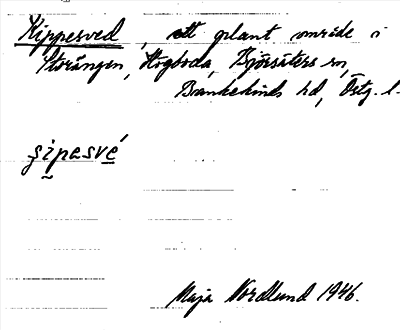 Kippesved, ett plant område i
Storängen, Hogboda, Björsäters sn,
Bankekinds hd, Östg. l.
şipesvé
Maja Nordlund 1946.